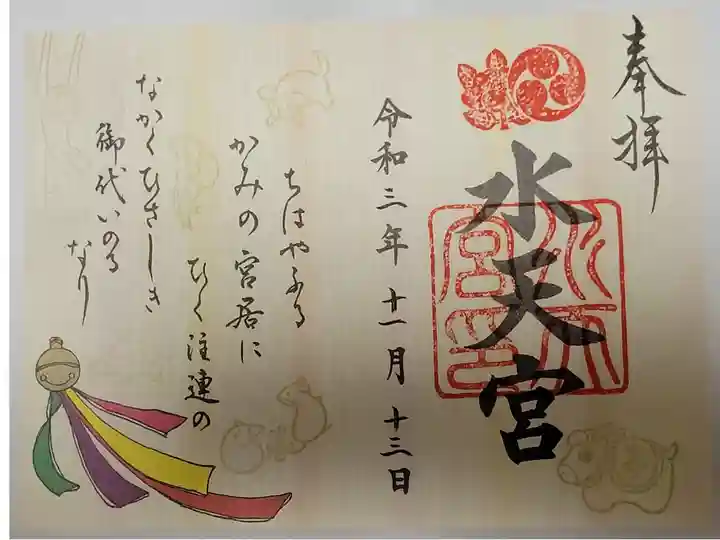 奉拝
水天宮
令和三年 十一月 十三日
ちはやふる
かみの宮居に
ひく注連の
なかくひさしき
御代いのる
なり